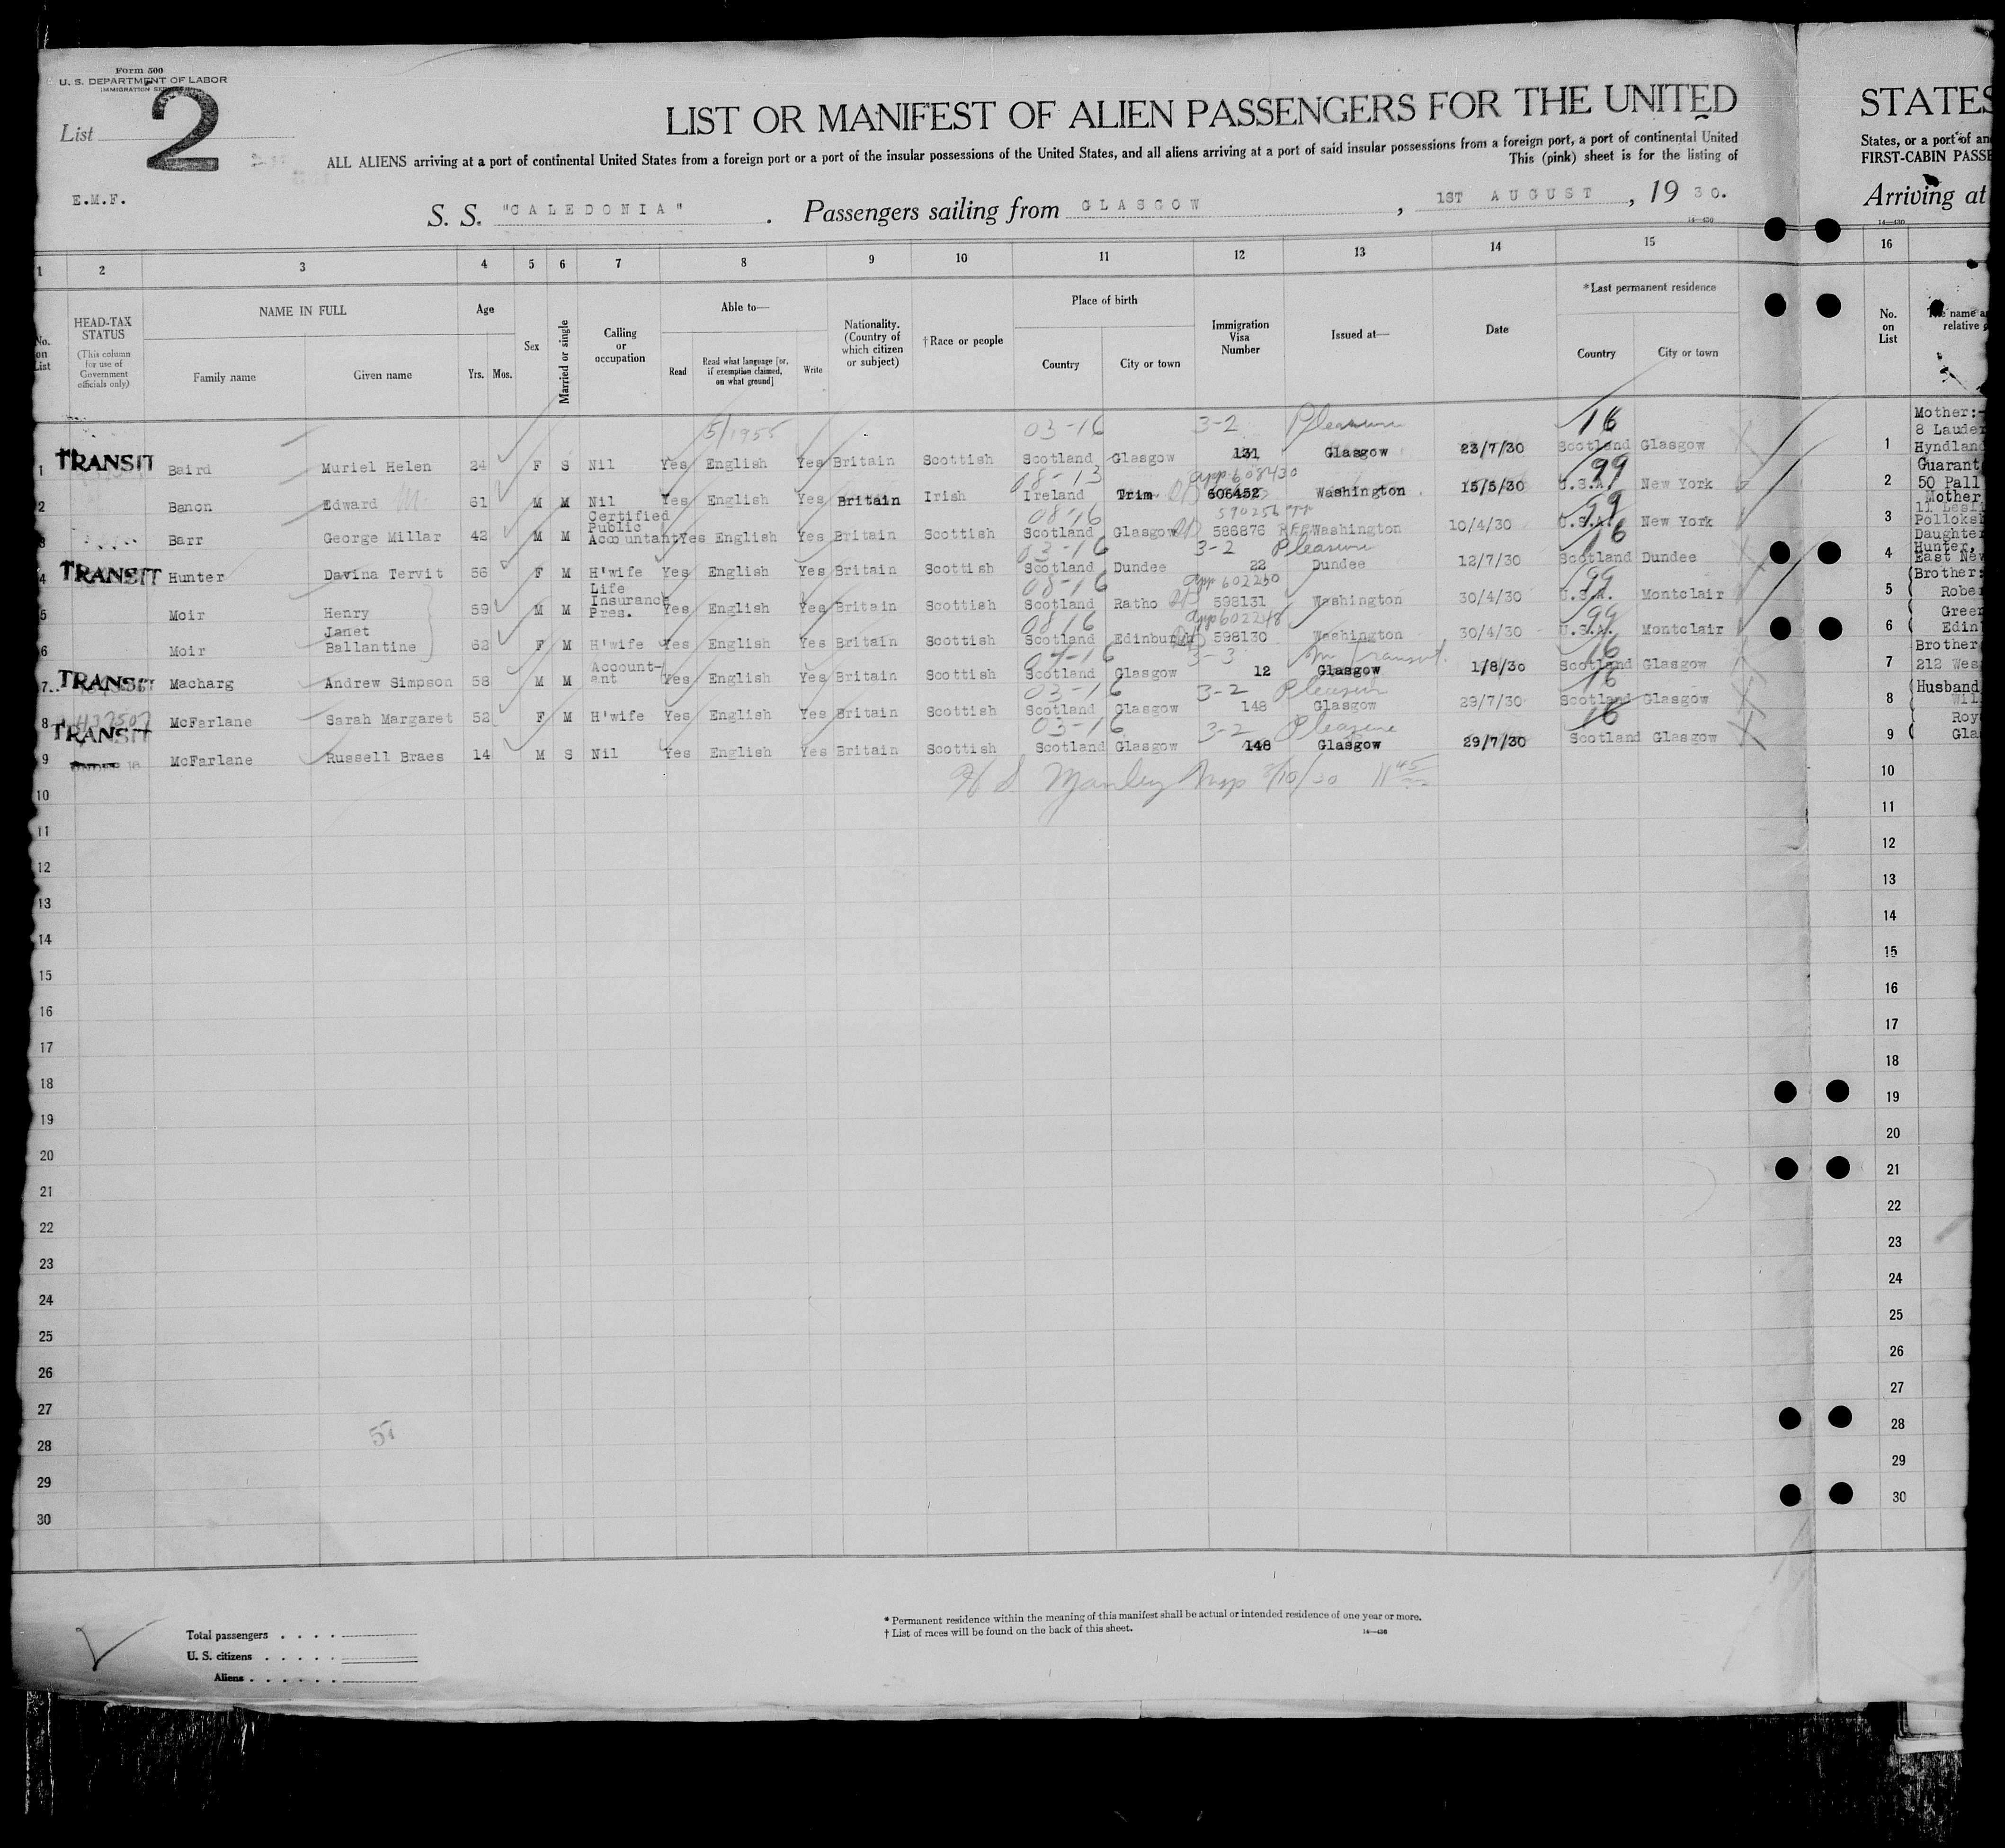 Form 500
U. S. DEPARTMENT OF LABOR
IMMIGRATION SERVICE
List 2
E.M.F.
LIST OR MANIFEST OF ALIEN PASSENGERS FOR THE UNITED
ALL ALIENS arriving at a port of continental United States from a foreign port or a port of the insular possessions of the United States, and all aliens arriving at a port of said insular possessions from a foreign port, a port of continental United
This (pink) sheet is for the listing of
S. S. "CALEDONIA" . Passengers sailing from GLASGOW , 1ST AUGUST , 19 30.
14—430
STATES
States, or a port of an
FIRST-CABIN PASSE
Arriving at
14—430
1 2 3 4 5 6 7 8 9 10 11 12 13 14 15 16
No. on List
HEAD-TAX STATUS
(This column for use of Government officials only)
NAME IN FULL
Family name Given name
Age
Yrs. Mos.
Sex
Married or single
Calling or occupation
Able to—
Read Read what language [or, if exemption claimed, on what ground] Write
Nationality. (Country of which citizen or subject)
†Race or people
Place of birth
Country City or town
Immigration Visa Number
Issued at—
Date
*Last permanent residence
Country City or town
No. on List
relative
5/1955 03-16 3-2 Pleasure 16
1 TRANSIT Baird Muriel Helen 24 F S Nil Yes English Yes Britain Scottish Scotland Glasgow 131 Glasgow 23/7/30 Scotland Glasgow
08-13 app 608430 99
2 Banon Edward M 61 M M Nil Yes English Yes Britain Irish Ireland Trim 606452 Washington 15/5/30 U.S.A. New York
08-16 99
3 Barr George Millar 42 M M Certified Public Accountant Yes English Yes Britain Scottish Scotland Glasgow 586876 Washington 10/4/30 U.S.A. New York
03-16 3-2 Pleasure 16
4 TRANSIT Hunter Davina Tervit 56 F M H'wife Yes English Yes Britain Scottish Scotland Dundee 22 Dundee 12/7/30 Scotland Dundee
08-16 app 602250 99
5 Moir Henry 59 M M Life Insurance Pres. Yes English Yes Britain Scottish Scotland Ratho 598131 Washington 30/4/30 U.S.A. Montclair
08-16 app 602248 99
6 Moir Janet Ballantine 62 F M H'wife Yes English Yes Britain Scottish Scotland Edinburgh 598130 Washington 30/4/30 U.S.A. Montclair
04-16 3-3 In Transit. 16
7 TRANSIT Macharg Andrew Simpson 58 M M Account-ant Yes English Yes Britain Scottish Scotland Glasgow 12 Glasgow 1/8/30 Scotland Glasgow
03-16 3-2 Pleasure 16
8 437507 McFarlane Sarah Margaret 52 F M H'wife Yes English Yes Britain Scottish Scotland Glasgow 148 Glasgow 29/7/30 Scotland Glasgow
03-16 3-2 Pleasure 16
9 TRANSIT UNDER 16 McFarlane Russell Braes 14 M S Nil Yes English Yes Britain Scottish Scotland Glasgow 148 Glasgow 29/7/30 Scotland Glasgow
H S Manley Insp 8/10/30 11 45
10
11
12
13
14
15
16
17
18
19
20
21
22
23
24
25
26
27
28
29
30
57
1 Mother:-
8 Lauder
Hyndland
2 Guarant
50 Pall
3 Mother
11 Lesli
Polloksh
4 Daughter
Hunter,
East New
5 (Brother:
Rober
( Green
6 ( Edin
7 Brother
212 Wes
8 (Husband
( Wil
( Roy
9 ( Gla
10
11
12
13
14
15
16
17
18
19
20
21
22
23
24
25
26
27
28
29
30
Total passengers . . . .
U. S. citizens . . . . .
Aliens . . . . . .
* Permanent residence within the meaning of this manifest shall be actual or intended residence of one year or more.
† List of races will be found on the back of this sheet.
14—430